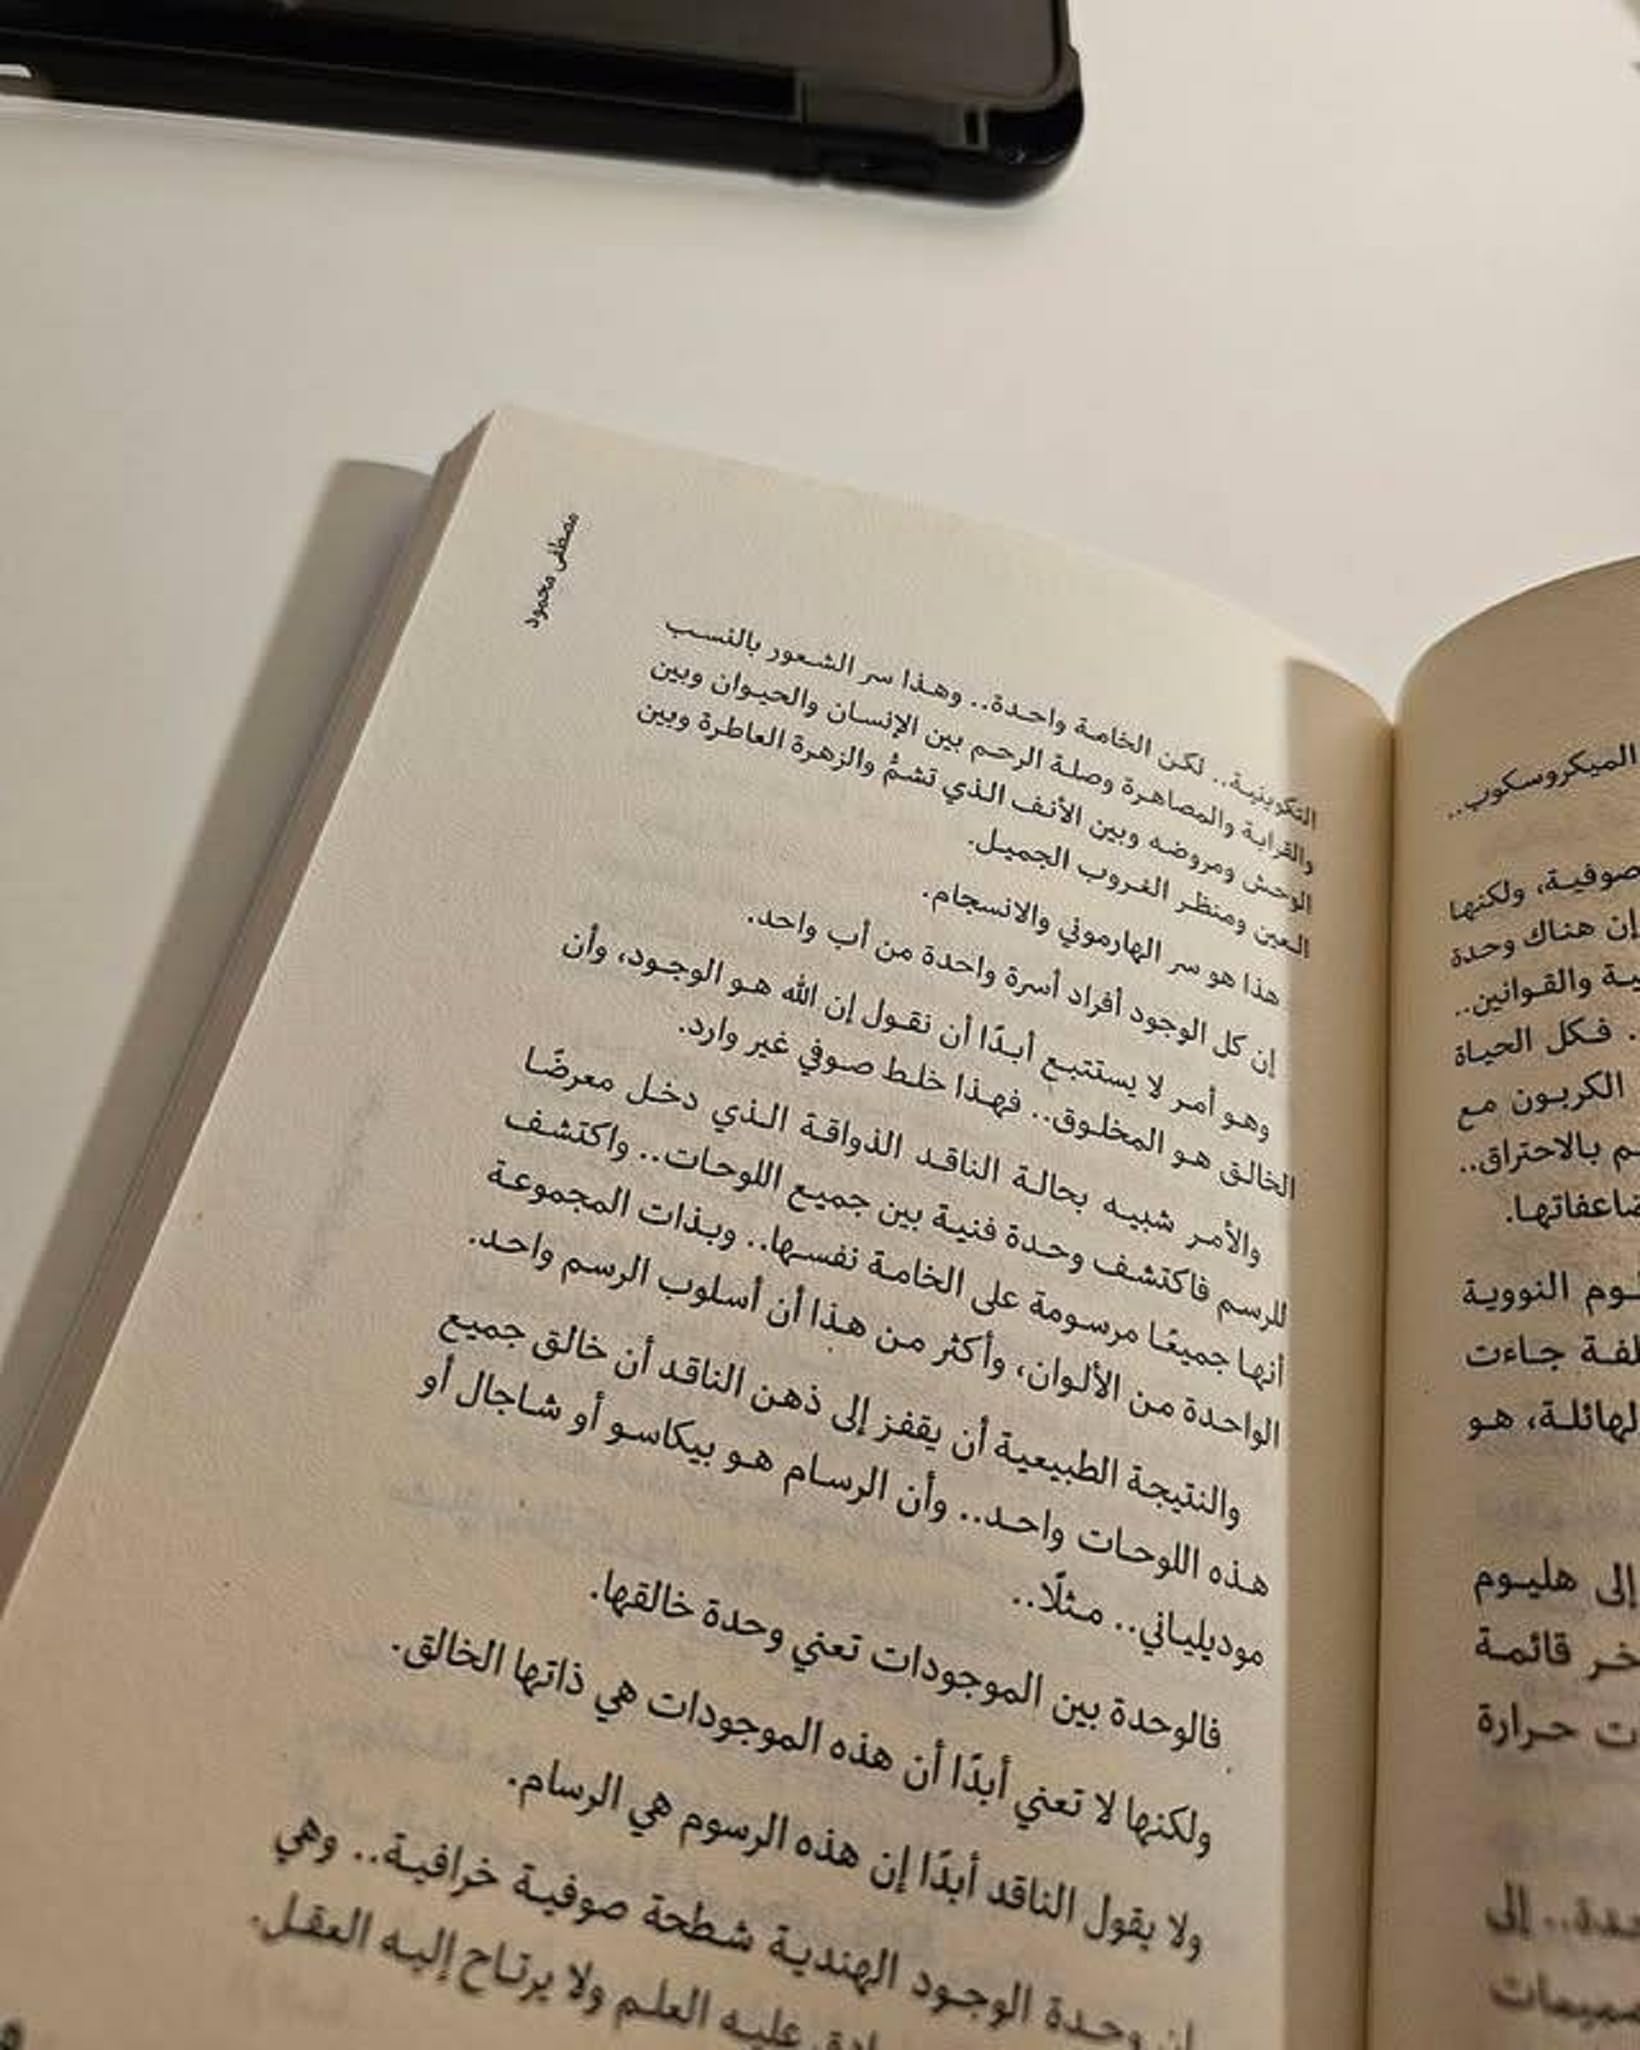 الميكروسكوب..
صوفية، ولكنها
إن هناك وحدة
والقوانين..
. فكل الحياة
الكربون مع
بالاحتراق..
النووية
جاءت
هو
إلى هليوم
قائمة
حرارة
إلى
مصطفى محمود
التكوينية.. لكن الخامة واحدة.. وهذا سر الشعور بالنسب
والقرابة والمصاهرة وصلة الرحم بين الإنسان والحيوان وبين
الوحش ومروضه وبين الأنف الذي تشمُّ والزهرة العاطرة وبين
العين ومنظر الغروب الجميل.
هذا هو سر الهارموني والانسجام.
إن كل الوجود أفراد أسرة واحدة من أب واحد.
وهو أمر لا يستتبع أبدًا أن نقول إن الله هو الوجود، وأن
الخالق هو المخلوق.. فهذا خلط صوفي غير وارد.
والأمر شبيه بحالة الناقد الذواقة الذي دخل معرضًا
للرسم فاكتشف وحدة فنية بين جميع اللوحات.. واكتشف
أنها جميعًا مرسومة على الخامة نفسها.. وبذات المجموعة
الواحدة من الألوان، وأكثر من هذا أن أسلوب الرسم واحد.
والنتيجة الطبيعية أن يقفز إلى ذهن الناقد أن خالق جميع
هذه اللوحات واحد.. وأن الرسام هو بيكاسو أو شاجال أو
موديلياني.. مثلًا..
فالوحدة بين الموجودات تعني وحدة خالقها.
ولكنها لا تعني أبدًا أن هذه الموجودات هي ذاتها الخالق.
ولا يقول الناقد أبدًا إن هذه الرسوم هي الرسام.
إن وحدة الوجود الهندية شطحة صوفية خرافية.. وهي
عليه العلم ولا يرتاح إليه العقل.